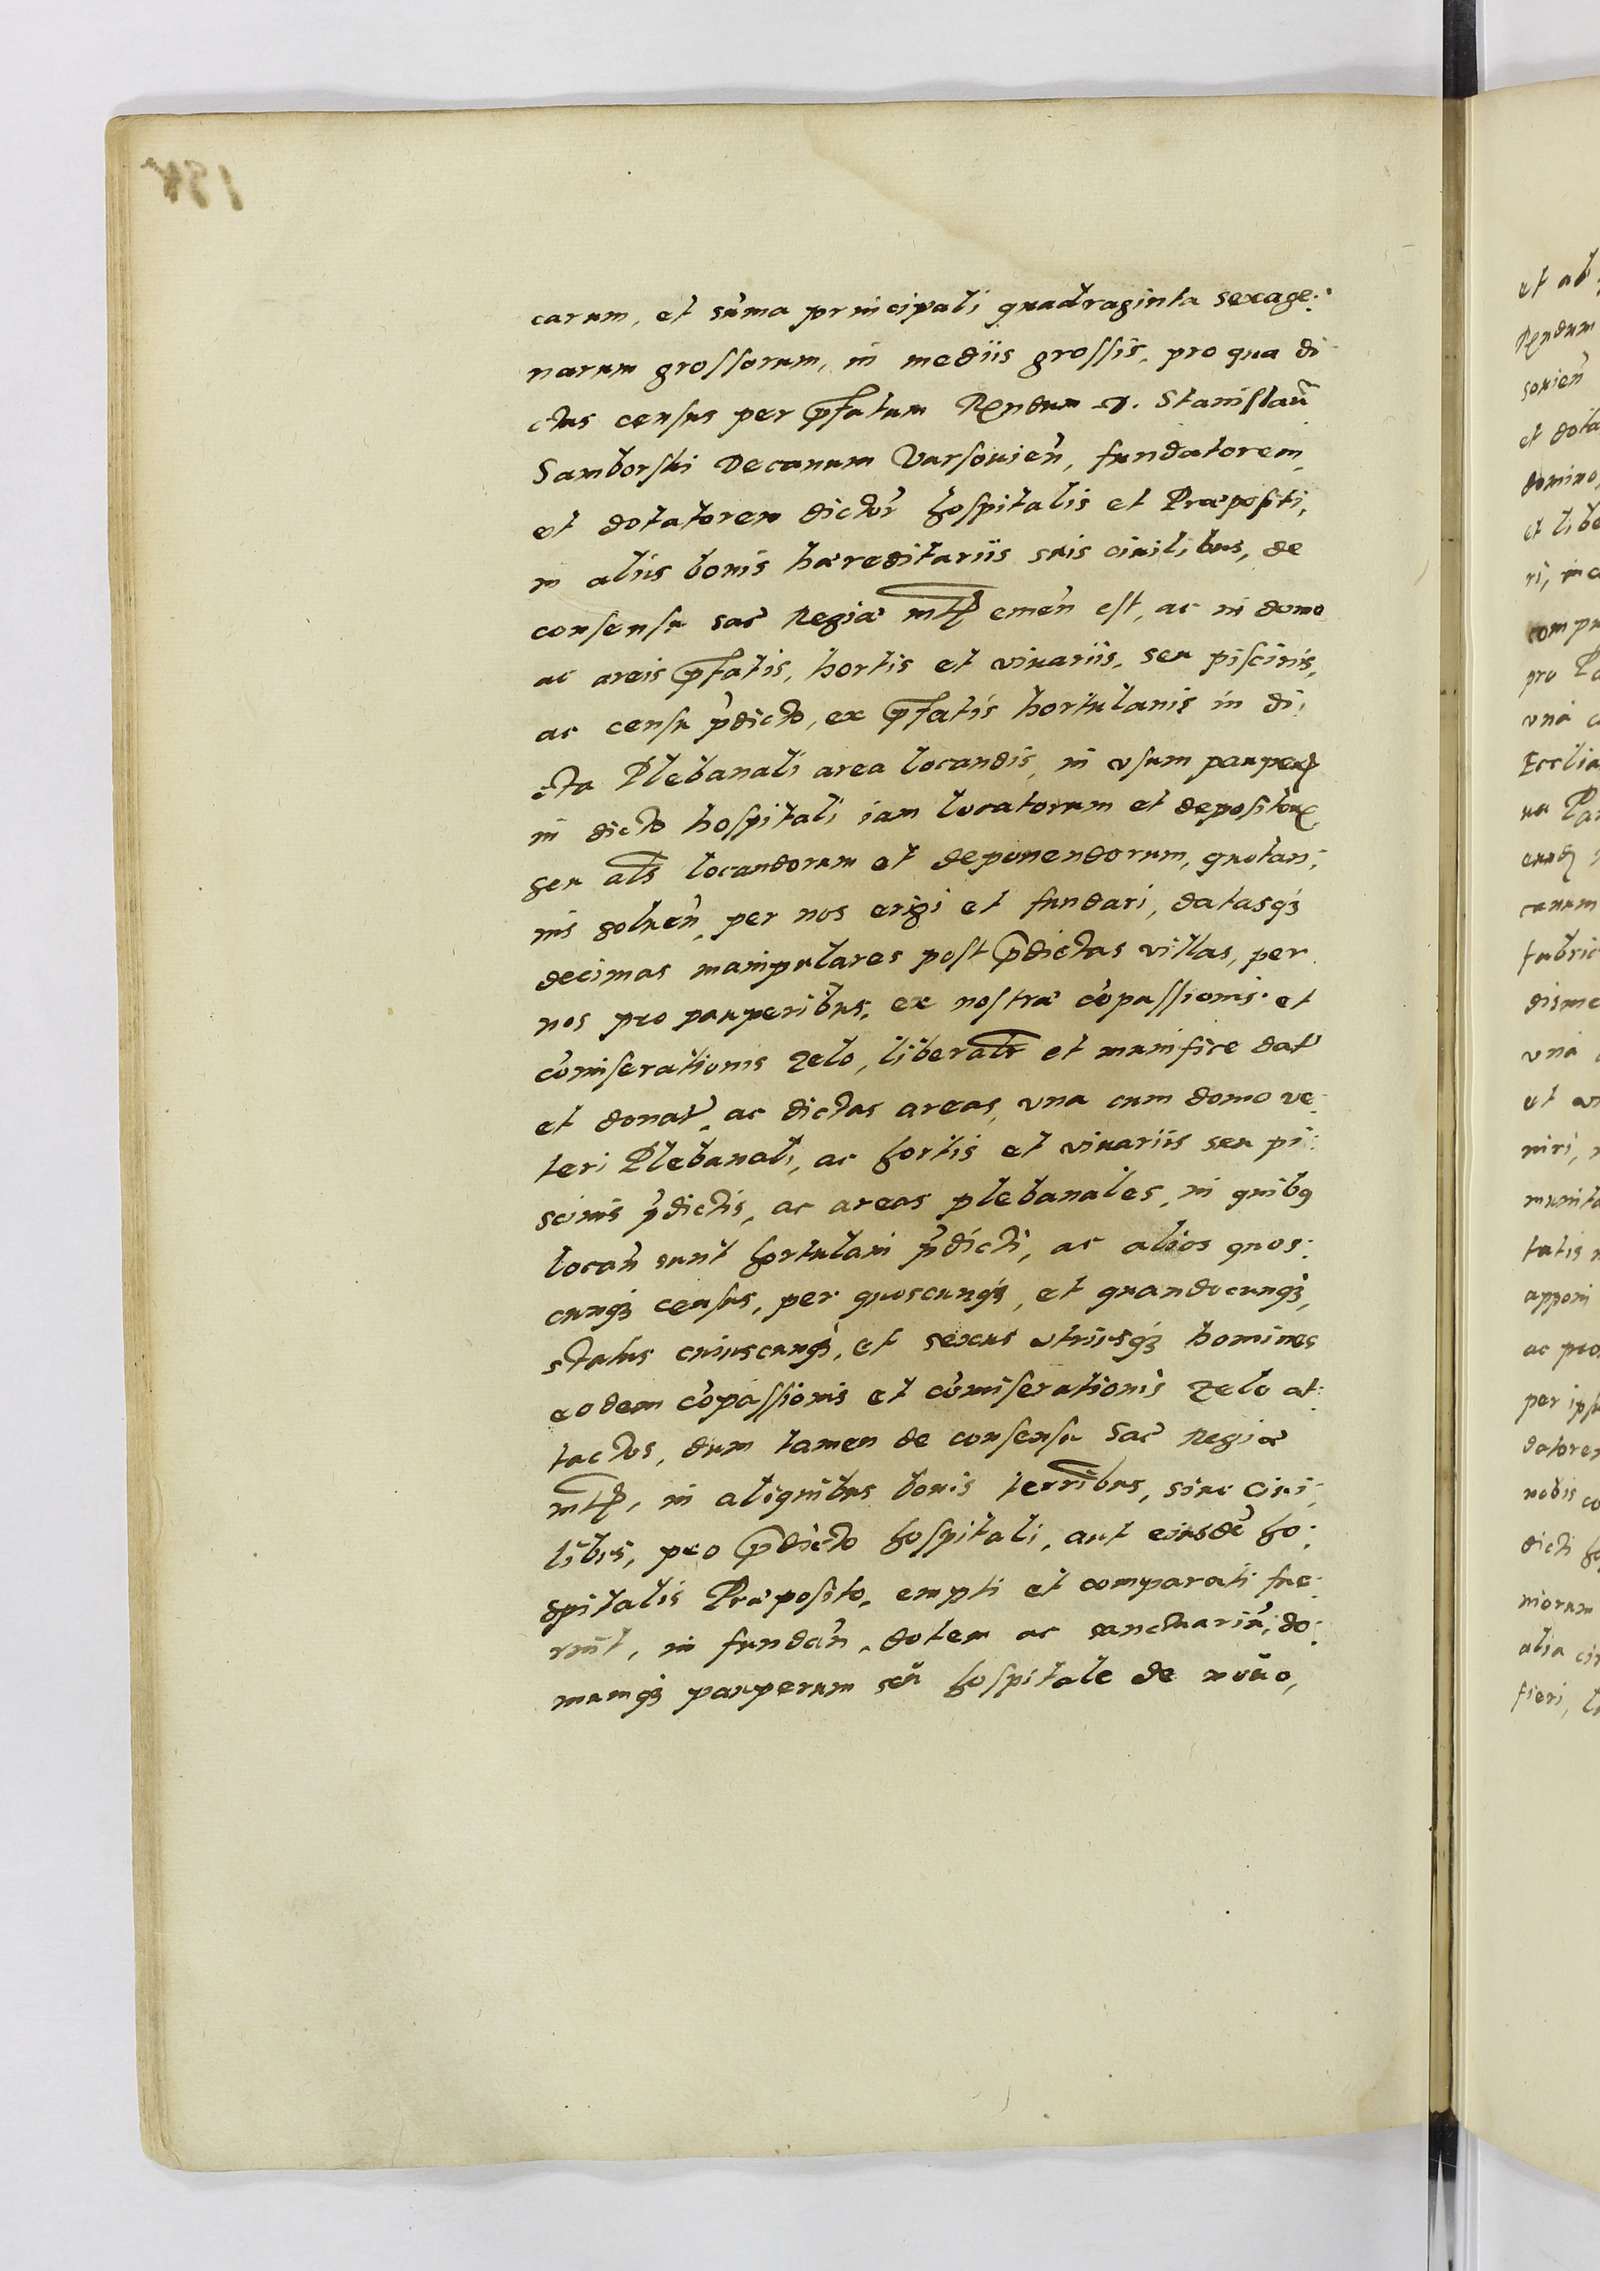 carum, et sum̃a principali quadraginta sexage:
narum grossorum, in mediis grossis, pro qua di
ctus census per p̃fatum Rendum D. Stanislaũ
Samborski Decanum Varsouien̄, fundatorem,
et dotatorem dictor̃ hospitalis et Præpositi,
in aliis bonis hæreditariis suis ciuilibus, de
consensu sac̃ Regiæ mtis emen̄ est, ac in domo
ac areis p̃fatis, hortis et viuariis, seu piscinis,
ac censu p̃dicto, ex p̃fatis hortulanis in di:
cta Plebanali area locandis, in vsum pauperꝝ
in dicto hospitali iam locatorum et depositorꝝ,
seu als locandorum et deponendorum, quotan:
nis soluen̄, per nos erigi et fundari, datasqꝫ
decimas manipulares post p̃dictas villas, per
nos pro pauperibus, ex nostræ cõpassionis et
cõmiserationis zelo, liberalr et munifice dat̃
et donat̃, ac dictas areas, vna cum domo ve:
teri Plebanali, ac hortis et viuariis seu pi:
scinis p̃dictis, ac areas plebanales, in quibꝰ
locan̄ sunt hortulani p̃dicti, ac alios quos:
cunqꝫ census, per quoscunqꝫ, et quandocunqꝫ,
status cuiuscunqꝫ, et sexus vtriusqꝫ homines
eodem cõpassionis et cõmiserationis zelo at:
tactos, dum tamen de consensu Sac̃ Regiæ
mtis, in aliquibus bonis terribus, siue ciui:
libus, pro p̃dicto hospitali, aut eiusdẽ ho:
spitalis Præposito, empti et comparati fue:
rint, in fundan̄, dotem ac sanctuariũ, do:
mumqꝫ pauperum seu hospitale de nouo,
et
Rendum
souien̄
et
domino,
et
ri,
pro
vna
ut
niri,
tatis
apponi
ac
per
nobis
dicti
niorum
alia
fieri,